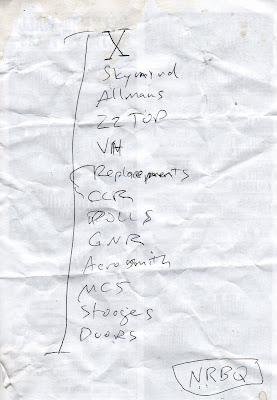 X
Skynyrd
Allmans
ZZ TOP
VH
Replacements
CCR
DOLLS
GNR
Aerosmith
MC5
Stooges
Doors
NRBQ